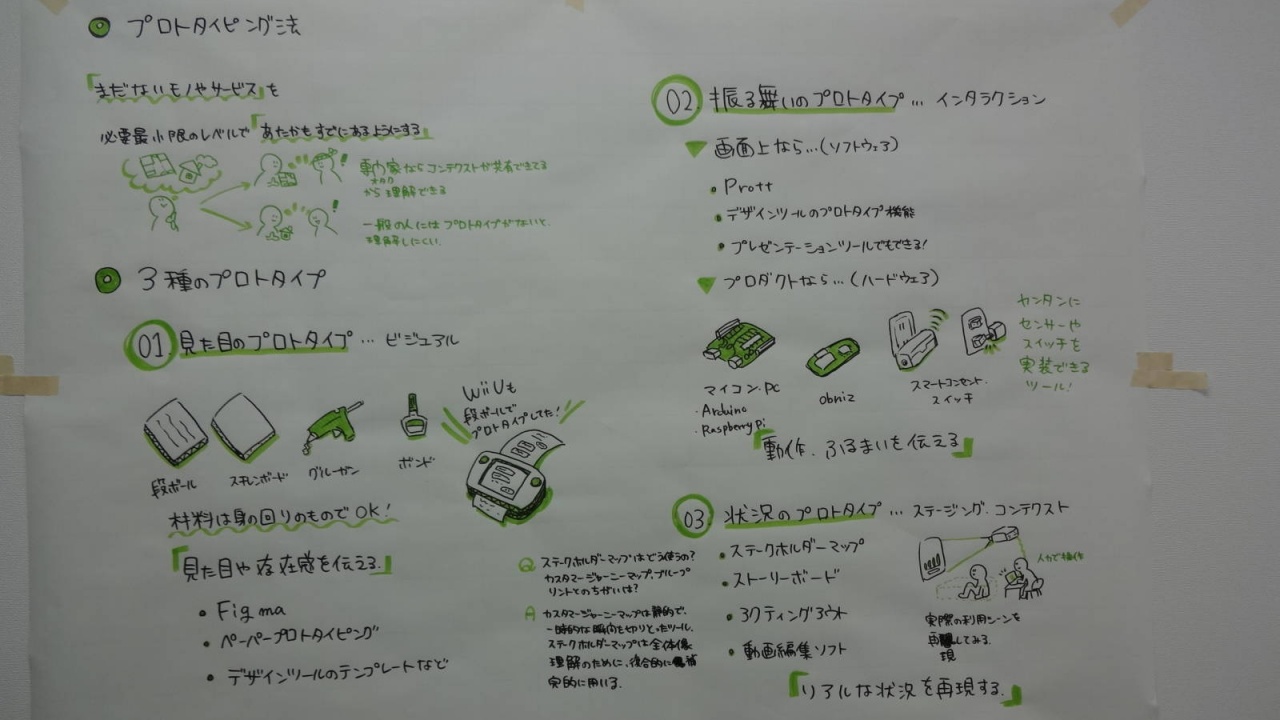 プロトタイピング法
「まだないモノやサービス」を
必要最小限のレベルで「あたかもすでにあるようにする」
専門家ならコンテクストが共有できてる
オタク
から理解できる
一般の人にはプロトタイプがないと
理解しにくい.
3種のプロトタイプ
01 見た目のプロトタイプ … ビジュアル
段ボール
スチレンボード
グルーガン
ボンド
WiiUも
段ボールで
プロトタイプしてた!
材料は身の回りのものでOK!
「見た目や存在感を伝える.」
・Figma
・ペーパープロトタイピング
・デザインツールのテンプレートなど
Q ステークホルダーマップはどう使うの?
カスタマージャーニーマップ,ブループ
リントとのちがいは?
A カスタマージャーニーマップは静的で,
一時的な瞬間を切りとったツール.
ステークホルダーマップは全体像
理解のために,複合的に補
完的に用いる.
02 振る舞いのプロトタイプ … インタラクション
画面上なら…(ソフトウェア)
・Prott
・デザインツールのプロトタイプ機能
・プレゼンテーションツールでもできる!
プロダクトなら…(ハードウェア)
マイコン.PC
・Arduino
・Raspberry Pi
obniz
スマートコンセント.
スイッチ
カンタンに
センサーや
スイッチを
実装できる
ツール!
「動作.ふるまいを伝える」
03. 状況のプロトタイプ … ステージング.コンテクスト
・ステークホルダーマップ
・ストーリーボード
・アクティングアウト
・動画編集ソフト
人力で操作
実際の利用シーンを
再現してみる.
「リアルな状況を再現する.」